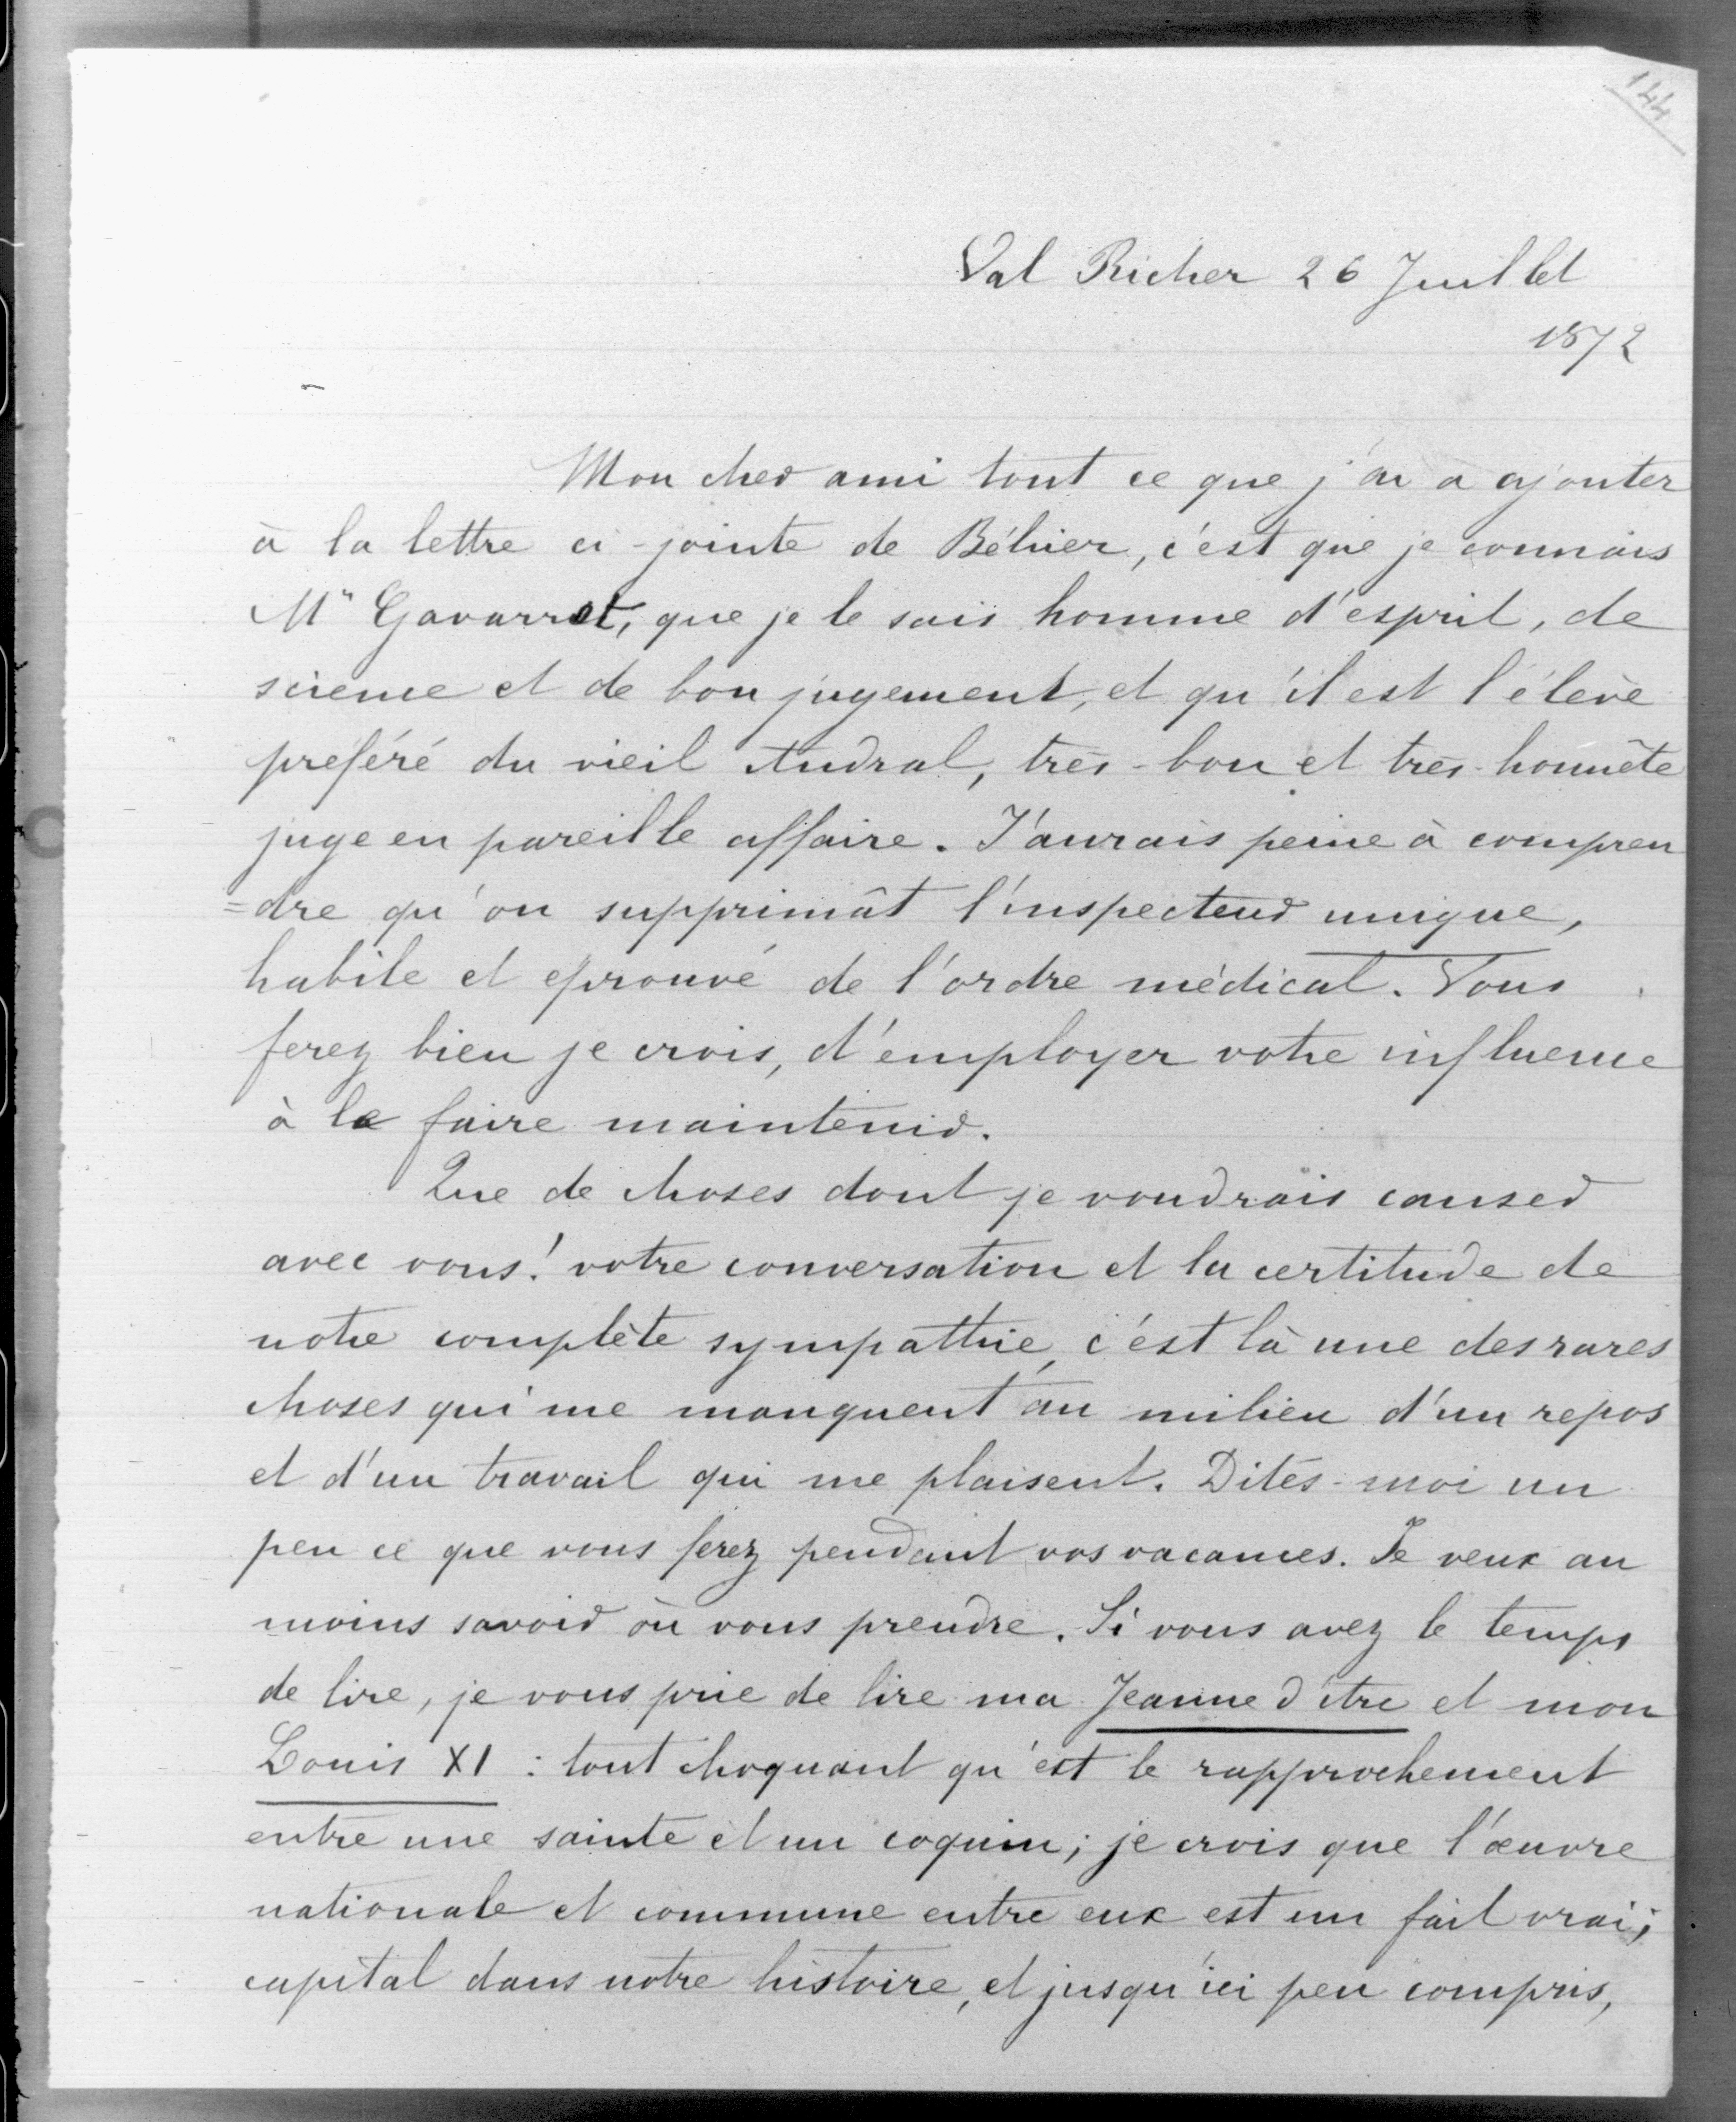 144
Val Richer 26 Juillet
1872
Mon cher ami tout ce que j'ai a ajouter
à la lettre ci-jointe de Béhier, c'est que je connais
Mr Gavarret, que je le sais homme d'esprit, de
science et de bon jugement, et qu'il est l'élève
préféré du vieil Andral, très-bon et très-honnête
juge en pareille affaire. J'aurais peine à compren
=dre qu'on supprimât l'inspecteur unique,
habile et éprouvé de l'ordre médical. Vous
ferez bien je crois, d'employer votre influence
à le faire maintenir.
Que de choses dont je voudrais causer
avec vous! votre conversation et la certitude de
notre complète sympathie, c'est là une des rares
choses qui me manquent au milieu d'un repos
et d'un travail qui me plaisent. Dites-moi un
peu ce que vous ferez pendant vos vacances. Je veux au
moins savoir où vous prendre. Si vous avez le temps
de lire, je vous prie de lire ma Jeanne d'Arc et mon
Louis XI : tout choquant qu'est le rapprochement
entre une sainte et un coquin; je crois que l'œuvre
nationale et commune entre eux est un fait vrai;
capital dans notre histoire, et jusqu'ici peu compris,